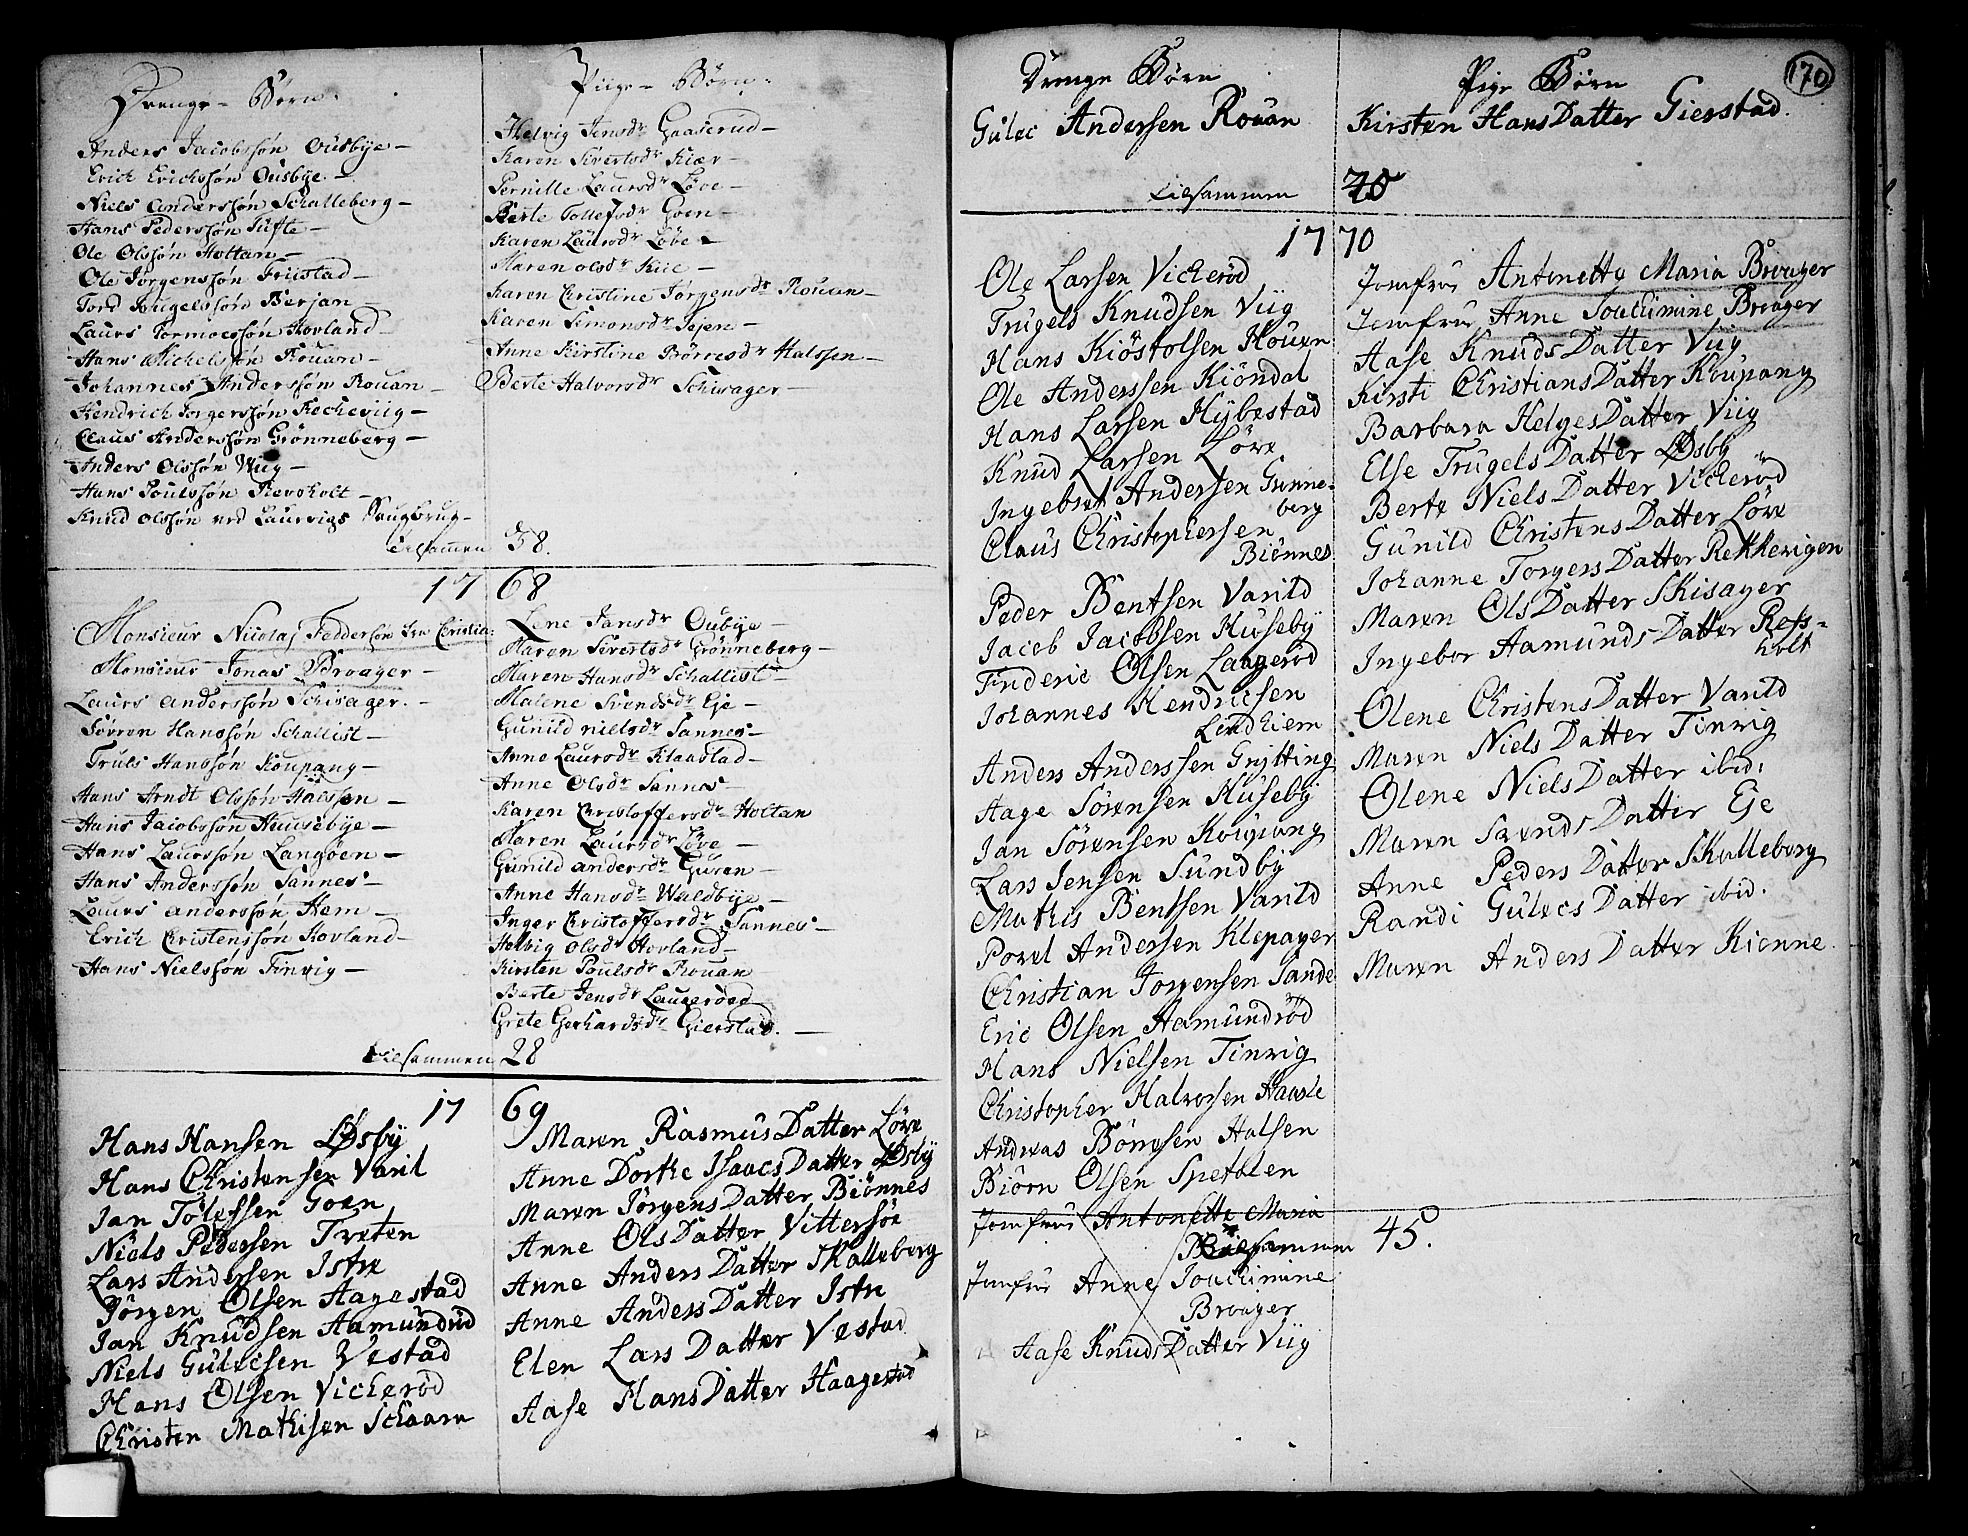 Drenge - Börn.
Anders Jacobssön Ousbye -
Erich Erichssön Ousbye. -
Niels Anderssön Schalleberg -
Hans Pederssön Tufte -
Ole Olssön Holtan -
Ole Jörgenssön Friistad -
Tord Engelssön Berjan -
Laurs Tormoessön Hovland
Hans Michelssön Rouan -
Johannes Anderssön Rouan -
Hendrich Torgerssön Recheviig -
Claus Anderssön Grönneberg -
Anders Olssön Wiig -
Hans Poulssön Revsholt -
Knud Olssön ved Laurvigs Saugbrug -
tilsammen 38.
Piige - Börn.
Helvig Jensdr Gaaserud -
Karen Sivertsdr Kiær -
Pernille Laursdr Löve -
Berte Tollefsdr Goen -
Karen Laursdr Löve -
Maren Olsdr Kiie -
Karen Christine Jörgensdr Rouan -
Karen Simonsdr Jejen -
Anne Kirstine Börresdr Halssen -
Berte Halvorsdr Schisager -
1768
Monsieur Nicolaj Feddersön fra Christia:
Monsieur Jonas Broager -
Laurs Anderssön Schisager. -
Sövren Hanssön Schallist -
Truls Hanssön Koupang -
Hans Arndt Olssön Halssen -
Hans Jacobssön Huusebye -
Hans Laurssön Langöen -
Hans Anderssön Sannes -
Laurs Anderssön Hem -
Erich Christenssön Hovland -
Hans Nielssön Tinvig -
Lene Jansdr Oubye -
Maren Sivertsdr Grönneberg -
Maren Hansdr Schallist -
Malene Svendsdr Eje -
Gunild Nielsdr Sannes -
Anne Laursdr Klaastad -
Anne Olsdr Sannes -
Karen Christoffersdr Holtan
Maren Laursdr Löve -
Gunild Andersdr Guren -
Anne Hansdr Waldbye -
Inger Christoffersdr Sannes -
Helvig Olsdr Hovland -
Kirsten Poulsdr Rouan
Berte Jensdr Laugeröed
Grete Gerhardsdr Gierstad. -
tilsammen 28
1769
Hans Hansen Øsby
Hans Christensen Varil
Jan Tolefsen Goen
Niels Pedersen Treten
Lars Andersen Istre
Jörgen Olsen Hagestad
Jan Knudsen Aamundrud
Niels Gulecsen Vestad
Hans Olsen Vickeröd
Christen Mathisen Schaarn
Maren RasmusDatter Löve
Anne Dorthe IsaacsDatter Øsby
Maren JörgensDatter Biönnes
Anne OlsDatter Vittersöe
Anne AndersDatter Skalleberg
Anne AndersDatter Istre
Elen LarsDatter Vestad
Aase HansDatter Haagestad
170
Drenge Börn
Gulec Andersen Rouan
Pige Börn
Kirsten HansDatter Gierstad.
tilsammen 20
1770
Ole Larsen Vickeröd
Trugels Knudsen Viig
Hans Kiöstolsen Houen
Ole Anderssen Kiöndal
Hans Larsen Hybestad
Knud Larsen Löve
Ingebret Andersen Grønne-
berg
Claus Christophersen
Biönnes
Peder Bentsen Varild
Jacob Jacobsen Huseby
Frideric Olsen Laageröd
Johannes Hendricsen
Lindhiem
Anders Anderssen Grytting
Aage Sörensen Huseby
Jan Sörensen Koupang
Lars Jensen Sundby
Mathis Bentsen Varild
Povel Andersen Klepager
Christian Jorgensen Sande
Eric Olsen Aamundröd
Hans Nielsen Tinvig
Christopher Halvorsen Haasle
Andreas Börresen Halsen
Biörn Olsen Spetalen
Jomfrue Antonette Maria
Tilsammen 45.
Jomfrue Anne Joachimine
Broager
Aase KnudsDatter Viig
Jomfrue Antonette Maria Broager
Jomfrue Anne Joachimine Broager
Aase KnudsDatter Viig
Kirsti ChristiansDatter Koupang
Barbara HelgesDatter Viig
Else TrugelsDatter Øsby
Berte NielsDatter Vickeröd
Gunild ChristensDatter Löve
Johanne TorgersDatter Rekkevigen
Maren OlsDatter Skisager
Ingebor AamundsDatter Refs-
holt
Olene ChristensDatter Varild
Maren NielsDatter Tinvig
Olene NielsDatter ibid:
Maren SvendsDatter Eje
Anne PedersDatter Skalleberg
Randi GulecsDatter ibid.
Maren AndersDatter Kionne